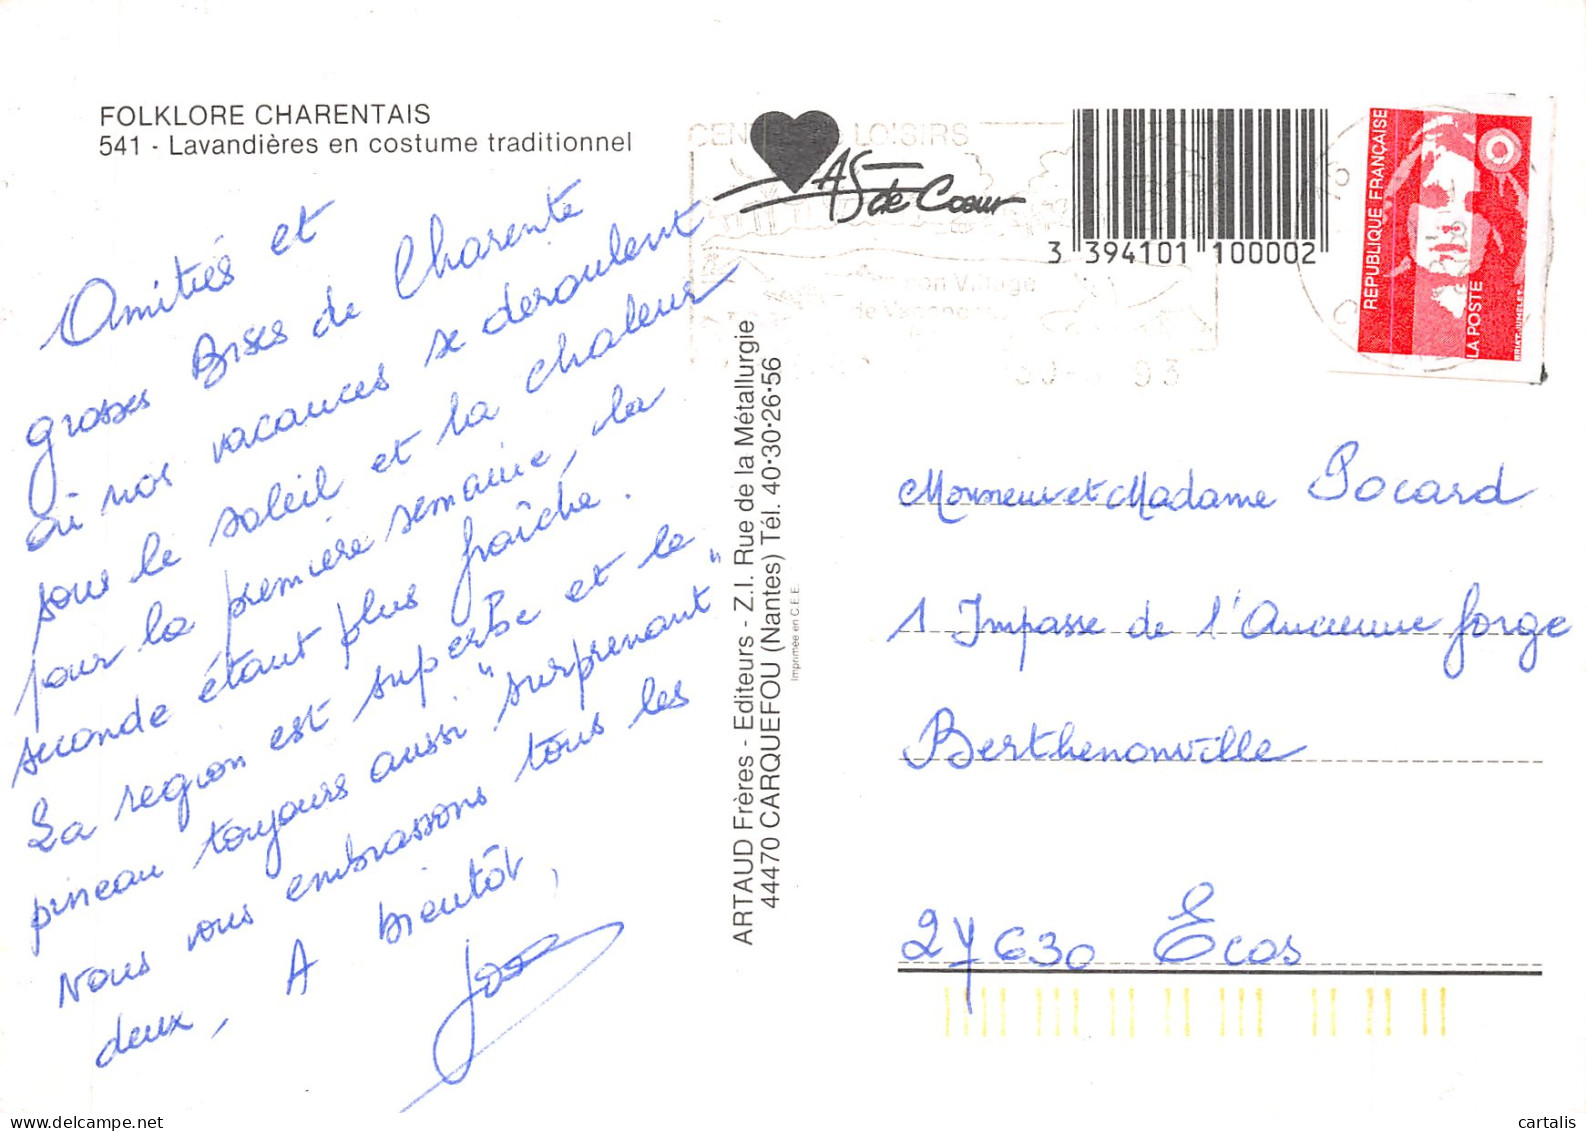 FOLKLORE CHARENTAIS
541 - Lavandières en costume traditionnel
Amitiés et
grosses Bises de Charente
où nos vacances se deroulent
sous le soleil et la chaleur
pour la première semaine, la
seconde étant plus fraîche.
La region est superbe et le
pineau toujours aussi "surprenant"
Nous vous embrassons tous les
deux, A bientôt,
ARTAUD Frères - Editeurs - Z.I. Rue de la Métallurgie
44470 CARQUEFOU (Nantes) Tél. 40·30·26·56
Imprimée en C.E.E.
CENTRE LOISIRS
AS de Coeur
3 394101 100002
mon Village
de Vacances
93
REPUBLIQUE FRANÇAISE
LA POSTE
BRIAT-JUMELET
Monsieur et Madame Pocard
1 Impasse de l'Ancienne forge
Berthenonville
27630 Ecos
cartalis